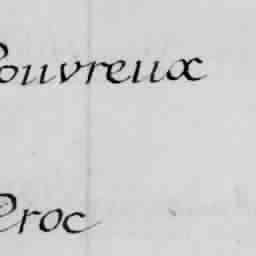 ouvreux
roc